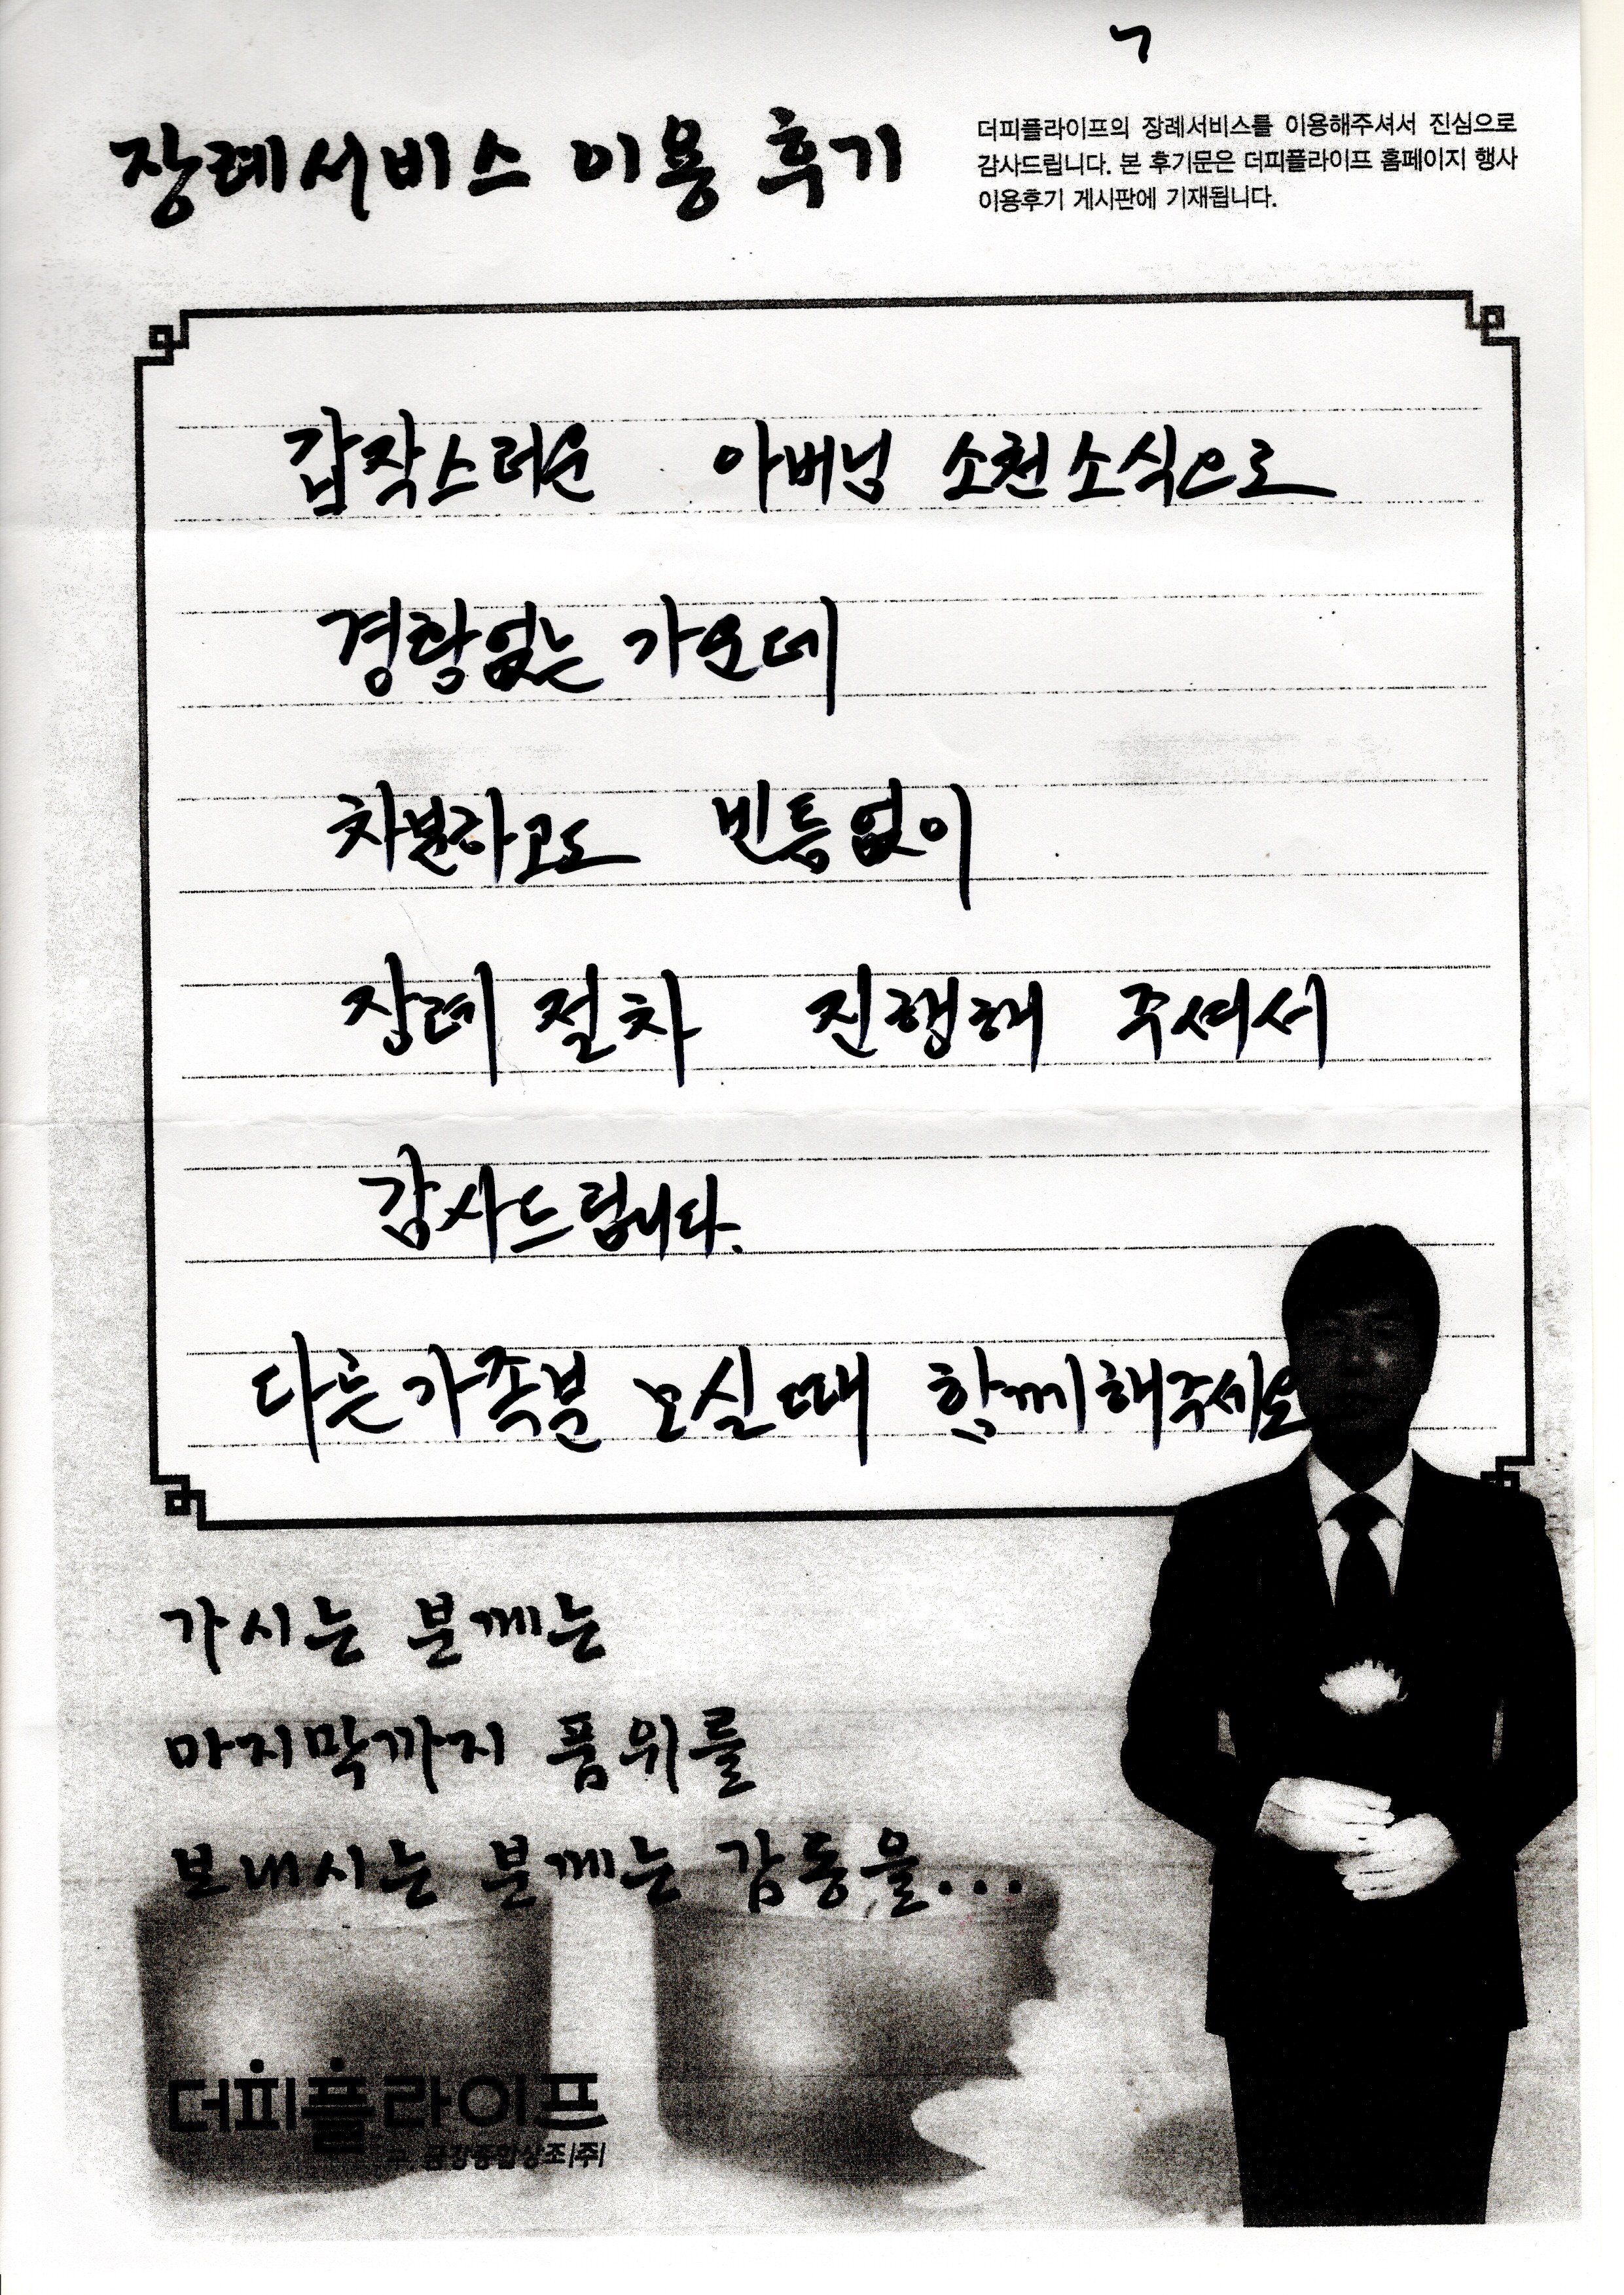 장례서비스 이용 후기
더피플라이프의 장례서비스를 이용해주셔서 진심으로
감사드립니다. 본 후기문은 더피플라이프 홈페이지 행사
이용후기 게시판에 기재됩니다.
갑작스러운 아버님 소천소식으로
경황없는 가운데
차분하고도 빈틈없이
장례 절차 진행해 주셔서
감사드립니다.
다른가족분 모실때 함께해주세요
가시는 분께는
마지막까지 품위를
보내시는 분께는 감동을...
더피플라이프
구. 금강종합상조(주)